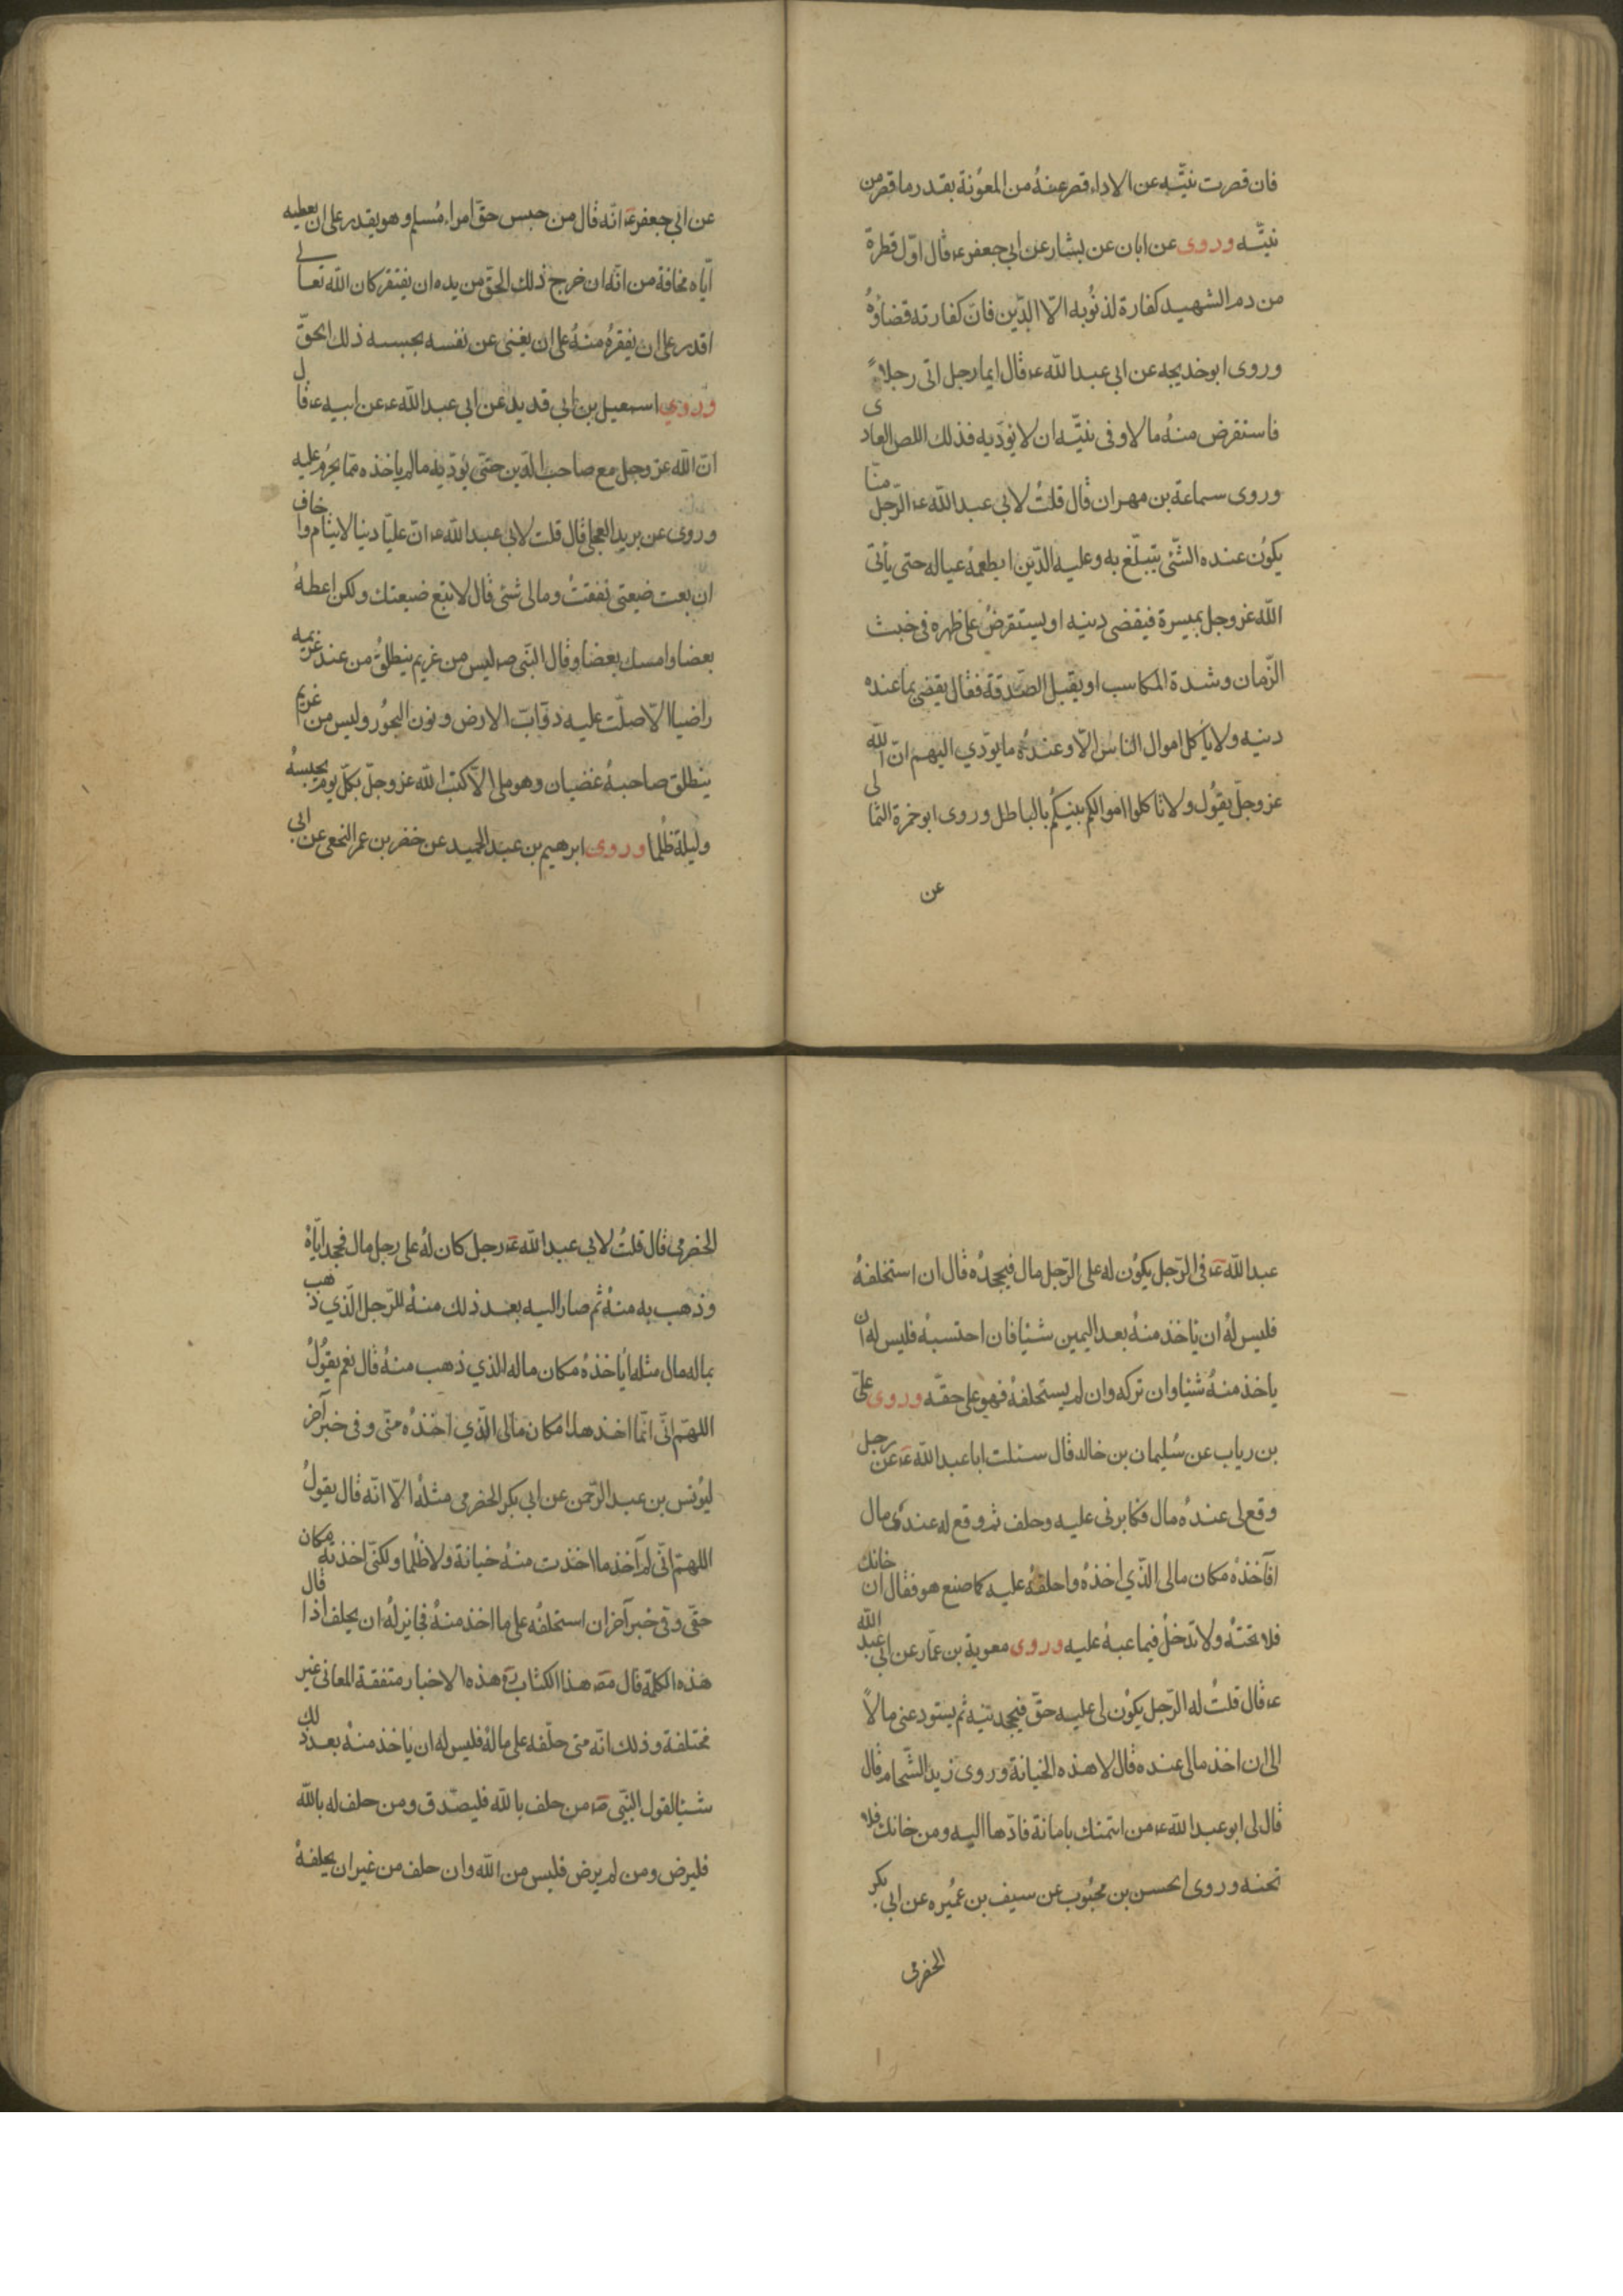 فان قصرت نيّته عن الاداء قصر عنهُ من المعوُنة بقدر ما قصر من
نيّته وروى عن ابان عن بشار عن ابي جعفر ع قال اوّل قطرة
من دم الشهيد كفارة لذنُوبه الّا الدّين فانّ كفارته قضاؤهُ
وروى ابو خديجه عن ابي عبد اللّه ع قال ايما رجل اتى رجلاً
فاستقرض منهُ مالا وفى نيّته ان لا يؤدّيه فذلك اللص العادى
وروى سماعة بن مهران قال قلتُ لابي عبد اللّه ع الرّجل منّا
يكوُن عنده الشّئ يتبلّغ به وعليه الدّين ايطعمهُ عياله حتى يأتى
اللّه عز وجل بميسرة فيقضى دينه او يستقرضُ على ظهره فى خبث
الزّمان وشدة المكاسب او يقبل الصّدقة فقال يقضى بما عنده
دينه ولا ياكل اموال الناس الّا وعندهُ ما يوّدي اليهم انّ اللّه
عز وجلّ يقوُل ولا تاكلوا اموالكم بينكُم بالباطل وروى ابو حمزة الثمالى
عن
عن ابي جعفر ع انّه قال من حبس حقّ امراء مُسلم وهو يقدر على ان يعطيه
ايّاه مخافة من انّه ان خرج ذلك الحقّ من يده ان يفتقر كان اللّه تعالى
اقدر على ان يفقرهُ منهُ على ان يغنى عن نفسه بحبسه ذلك الحقّ
وروي اسمعيل بن ابي قديد عن ابى عبد اللّه ع عن ابيه ع قال
انّ اللّه عز وجل مع صاحب الدّين حتى يؤدّيه ما لم ياخذه ممّا يحرُم عليه
وروى عن بريد العجلى قال قلت لابى عبد اللّه ع انّ عليّا دينا لايتام واخاف
ان بعت ضيعتى نفقتُ ومالى شئ قال لا تبع ضيعتك ولكن اعطهُ
بعضا وامسك بعضا وقال النّبى ص ليس من غريم ينطلقُ من عند غريمه
راضيا الّا صلّت عليه دوّابّ الارض ونون البحوُر وليس من غريم
ينطلق صاحبهُ غضبان وهو ملى الّا كتب اللّه عز وجلّ بكلّ يوم يحبسهُ
وليلة ظلما وروى ابرهيم بن عبد الحميد عن خضر بن عمر النخعى عن ابي
عبد اللّه ع فى الرّجل يكوُن له على الرّجل مال فيجحدهُ قال ان استحلفهُ
فليس لهُ ان ياخذ منهُ بعد اليمين شئيا فان احتسبهُ فليس له ان
ياخذ منهُ شئيا وان تركه وان لم يستحلفهُ فهو على حقّه وروى علىّ
بن رياب عن سُليمان بن خالد قال سئلت ابا عبد اللّه ع عن رجل
وقع لى عندهُ مال فكابرنى عليه وحلف ثم وقع له عندى مال
اۤفآخذهُ مكان مالى الذّي اخذهُ واحلفهُ عليه كما صنع هو فقال ان خانك
فلا تخنهُ ولا تدخلْ فيما عبهُ عليه وروى معوية بن عمّار عن ابى عبد اللّه
ع قال قلتُ له الرّجل يكوُن لى عليه حقّ فيجحدنيه ثم يستودعنى مالاً
الى ان اخذ مالى عنده قال لا هذه الخيانة وروى زيد الشّحام قال
قال لى ابو عبد اللّه ع من ائتمنك بامانة فادّها اليه ومن خانك فلا
تخنه وروى الحسن بن محبُوب عن سيف بن عميُره عن ابي بكر
الحضرمى
الحضرمى قال قلتُ لابي عبد اللّه ع رجل كان لهُ على رجل مال فجحدايّاهُ
وذهب به منهُ ثم صار اليه بعد ذلك منهُ للرّجل الّذي ذهب
بماله مال مثله ايأخذهُ مكان ماله الذي ذهب منهُ قال نعم يقوُلُ
اللهمّ انّى انّما اخذ هذا مكان مالى الّذي اخذهُ منّى وفى خبر آخر
ليوُنس بن عبد الرّحمن عن ابى بكر الحضرمى مثلهُ الّا انّه قال يقولُ
اللهمّ انّى لم آخذ ما اخذت منهُ خيانة ولا ظلُما ولكنّى اخذتهُ مكان
حقى وفى خبر آخر ان استحلفُه على ما اخذ منهُ فجايز لهُ ان يحلف اذا قال
هذه الكلمة قال مص هذا الكتاب ره هذه الاخبار متفقة المعانى غير
مختلفة وذلك انّه متى حلّفه على مالهُ فليس له ان ياخذ منهُ بعد ذلك
شئيا لقول النّبى ص من حلف باللّه فليصدّق ومن حلف له باللّه
فليرض ومن لم يرض فليس من اللّه وان حلف من غير ان يحلفهُ